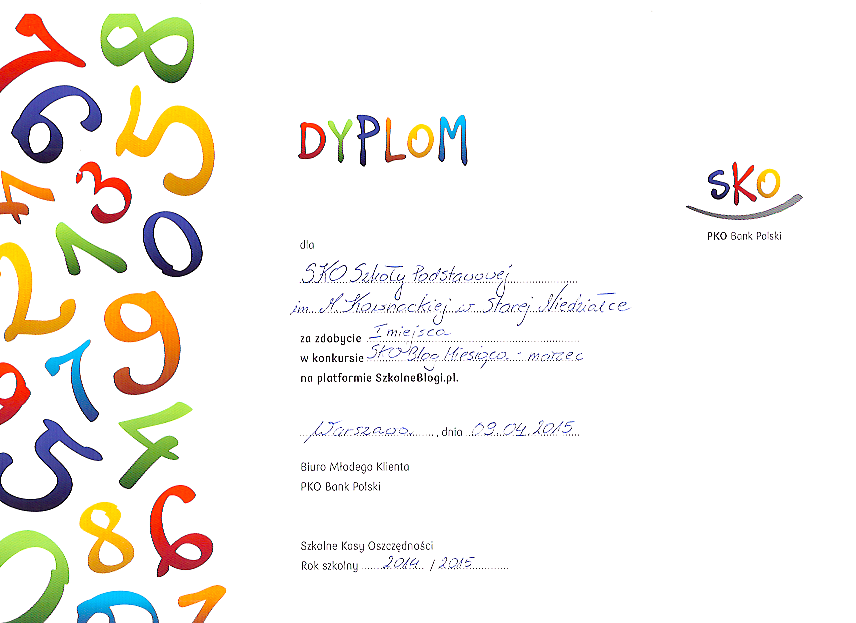 DYPLOM
SKO
PKO Bank Polski
dla
SKO Szkoły Podstawowej
im. M. Kownackiej w Starej Niedziałce
za zdobycie I miejsca
w konkursie SKO Blog Miesiąca - marzec
na platformie SzkolneBlogi.pl.
Warszawa, dnia 09.04.2015
Biuro Młodego Klienta
PKO Bank Polski
Szkolne Kasy Oszczędności
Rok szkolny 2014 / 2015